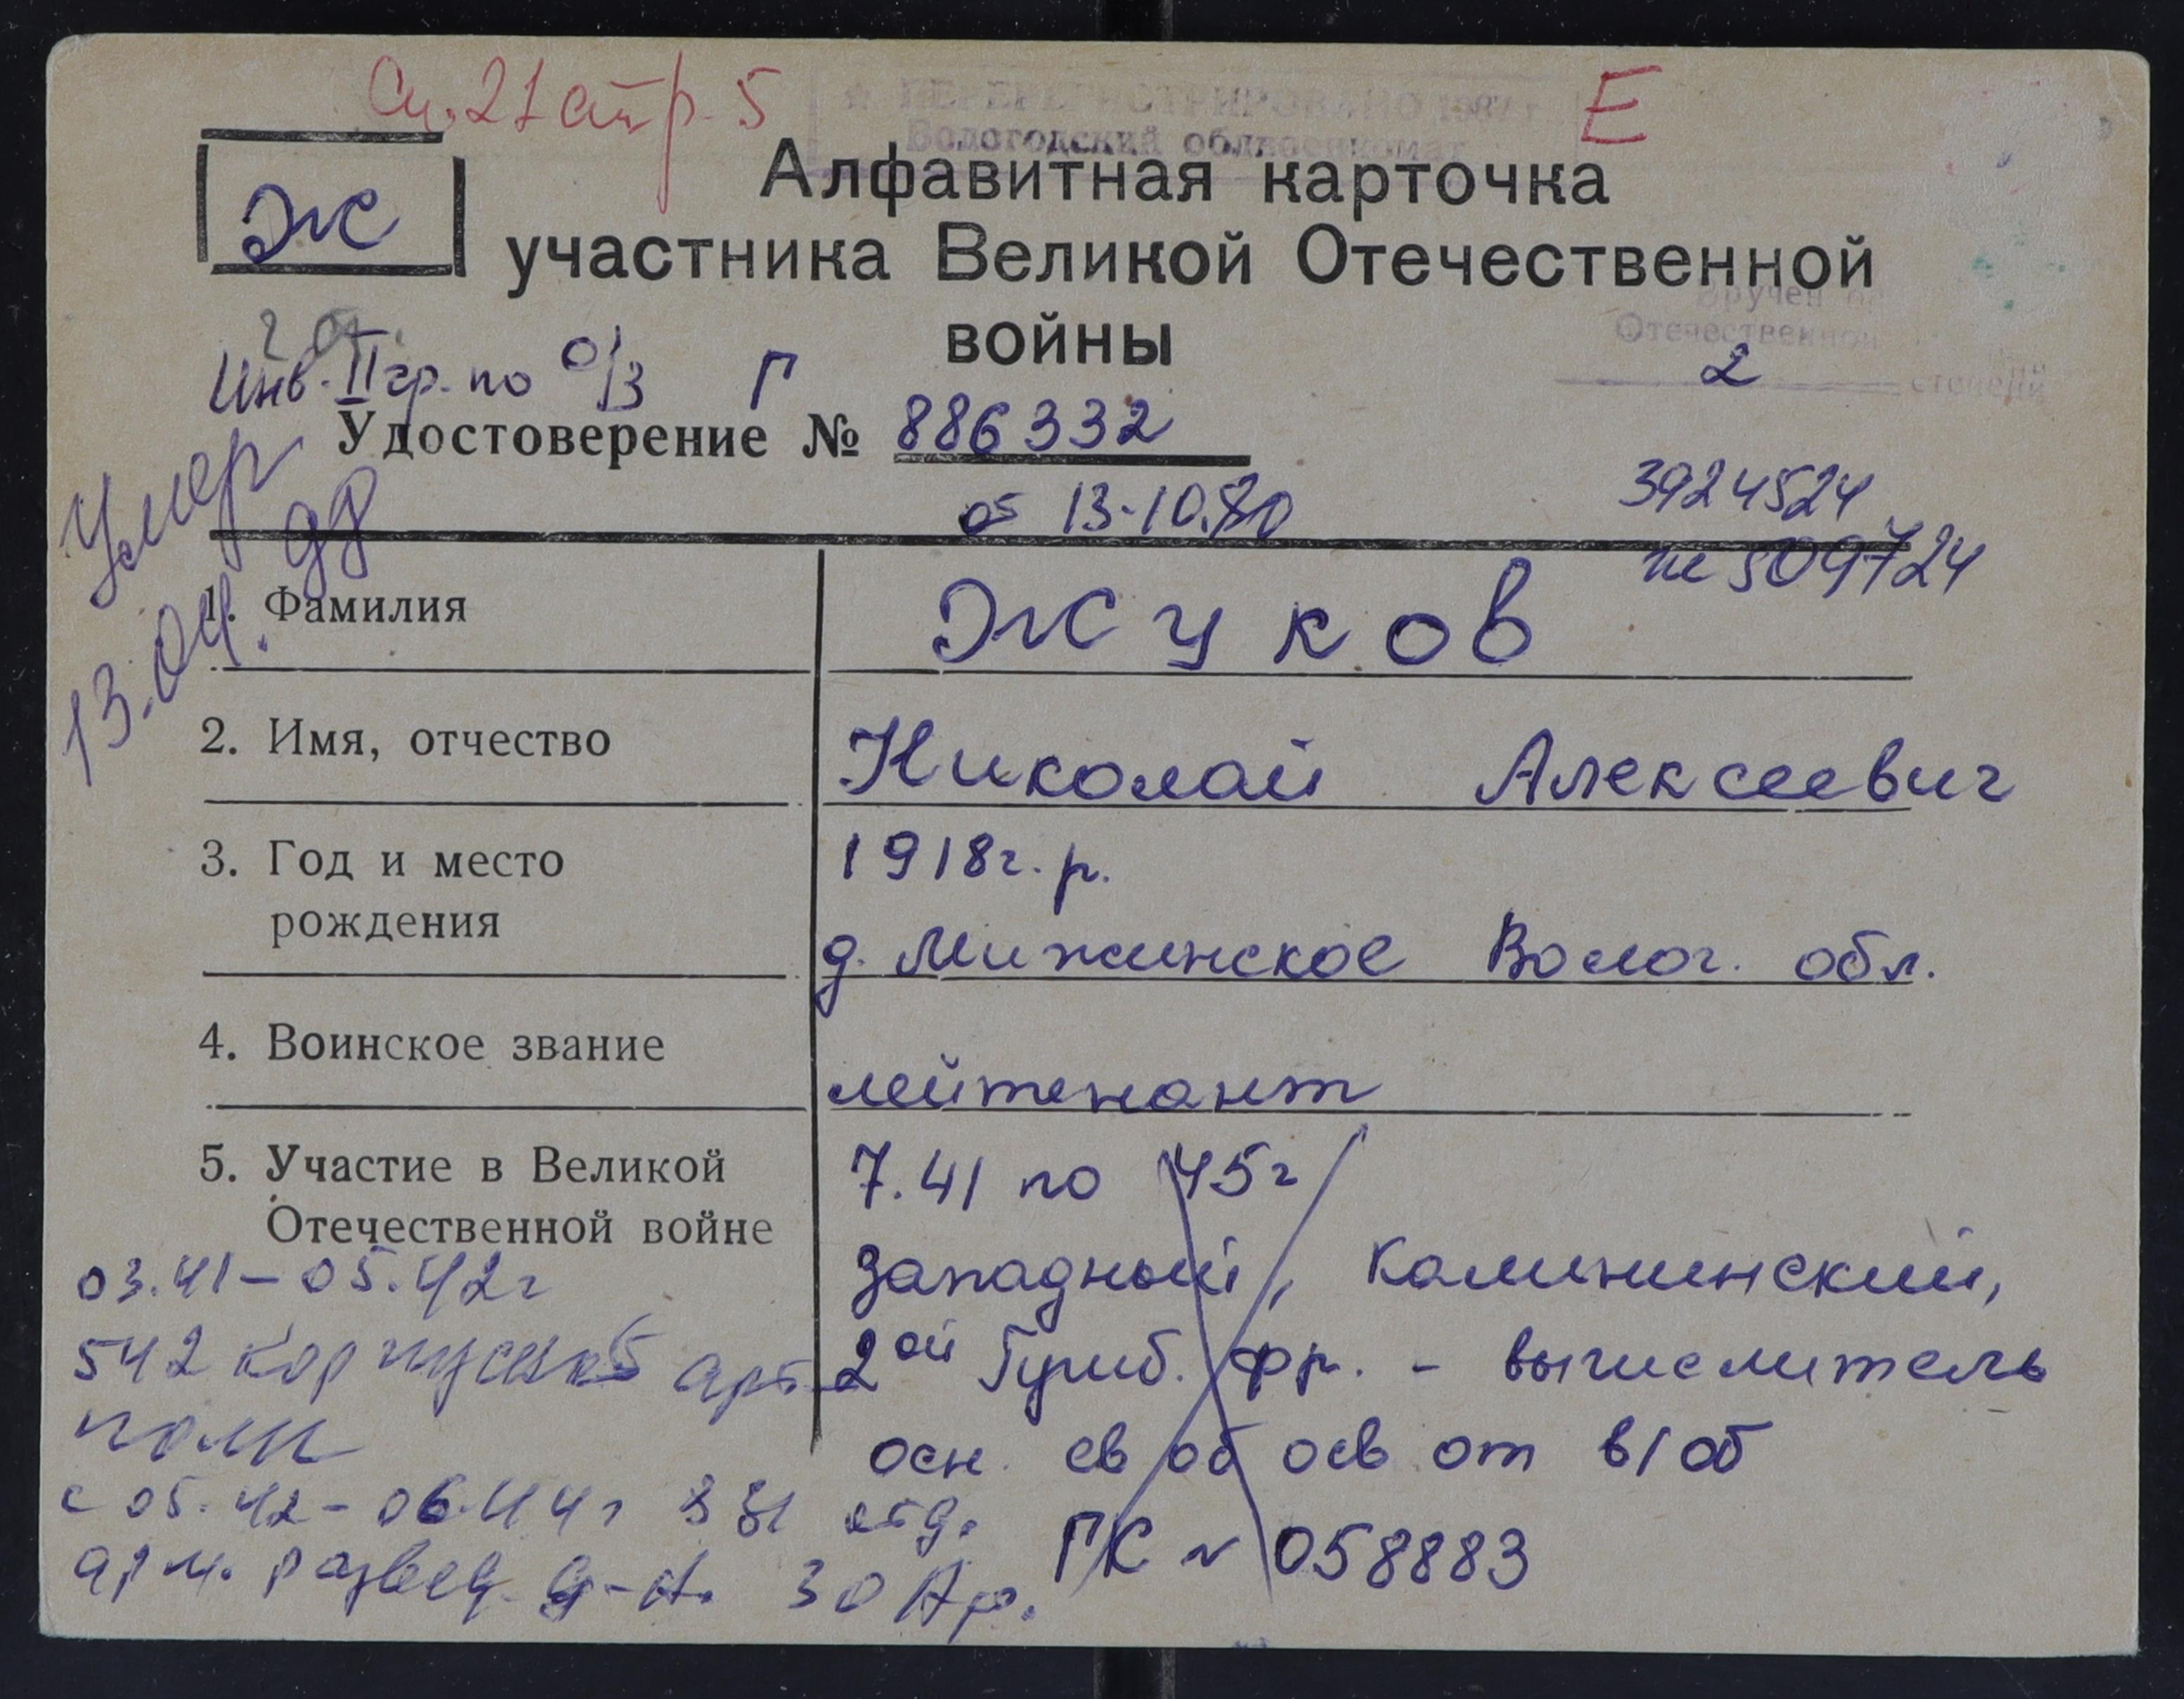 Сп. 21 стр. 5
Е
ПЕРЕРЕГИСТРИРОВАНО
Вологодский облвоенкомат
Ж
Алфавитная карточка
участника Великой Отечественной
войны
Вручен
Отечественной
2
степени
Инв. II гр. по о/з Г
Удостоверение № 886332
от 13.10.80
3924524
509724
Умер
13.04.98
1. Фамилия
Жуков
2. Имя, отчество
Николай Алексеевич
3. Год и место
рождения
1918 г. р.
д. Мижинское Волог. обл.
4. Воинское звание
лейтенант
5. Участие в Великой
Отечественной войне
7.41 по 45 г
Западный, Калининский,
2ой Приб. фр. - вычислитель
осн. св об осв от в/об
ГК № 058883
03.41-05.42 г
542 корпусной арт
полк
с 05.42-06.44 г отд.
арм. развед. д-н. 30 Ар.